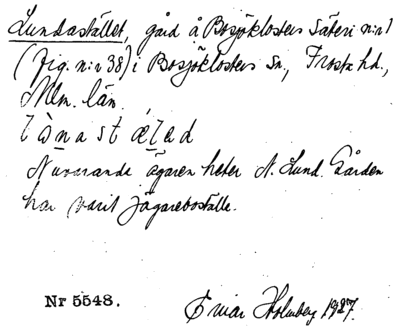 Lundastället, gård å Bosjöklosters Säteri n:r 1
(fig. n:r 38) i Bosjöklosters sn., Frosta hd.,
Mlm. län.
Nuvarande ägaren heter N. Lund. Gården
har varit Jägareboställe.
Nr 5548.
Ewar Holmberg 1927.